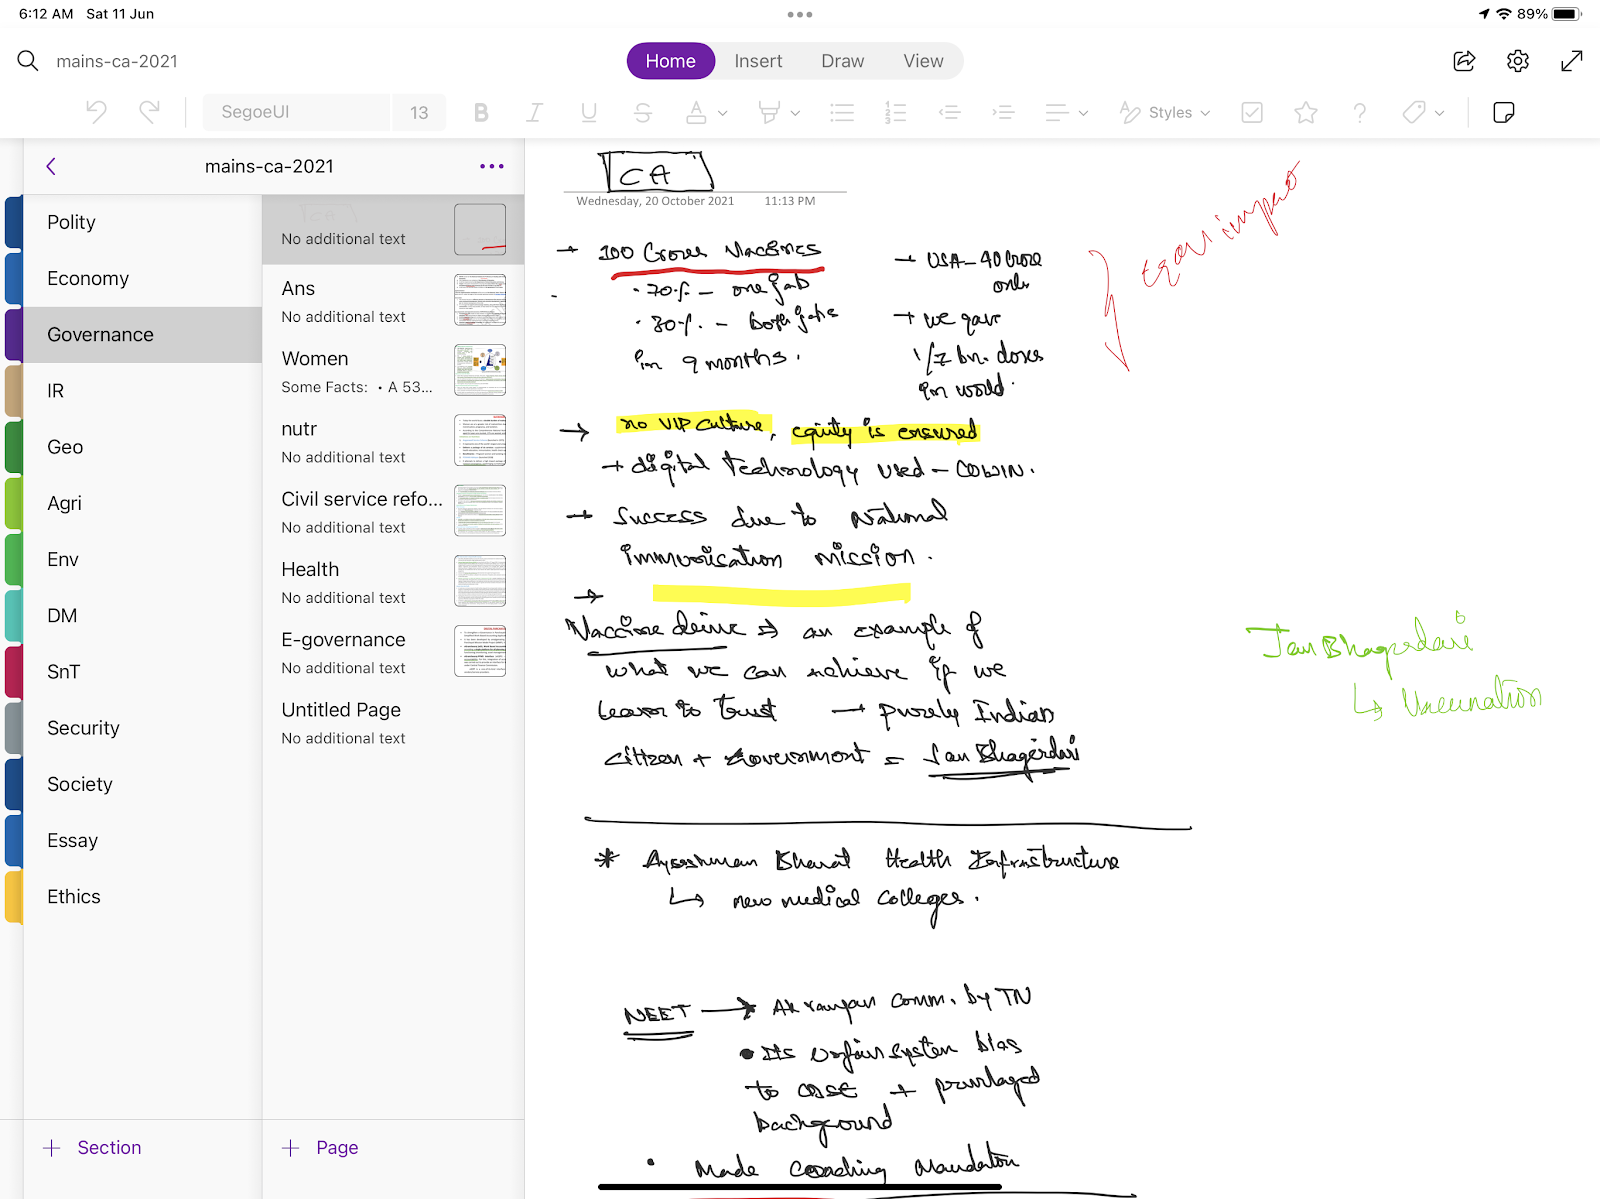 6:12 AM Sat 11 Jun
89%
mains-ca-2021
Home Insert Draw View
SegoeUI 13 B I U S A Styles
mains-ca-2021
Polity
Economy
Governance
IR
Geo
Agri
Env
DM
SnT
Security
Society
Essay
Ethics
+ Section
CA
No additional text
Ans
No additional text
Women
Some Facts: • A 53...
nutr
No additional text
Civil service refo...
No additional text
Health
No additional text
E-governance
No additional text
Untitled Page
No additional text
+ Page
CA
Wednesday, 20 October 2021 11:13 PM
→ 100 Crores Vaccines
• 70% – one jab
• 30% – both jabs
in 9 months.
→ USA – 40 Crore
only
→ we gave
1/7 bn. doses
in world.
→ no VIP culture, equity is ensured
→ digital technology used – COWIN.
→ Success due to National
immunisation mission.
→
Vaccine drive → an example of
what we can achieve if we
learn to trust → purely Indian
citizen + Government = Jan Bhagirdari
Jan Bhagerdari
↳ Vaccination
* Ayushman Bharat Health Infrastructure
↳ new medical colleges.
NEET → AK Comm. by TN
• Its unfair system bias
to CBSE + privilaged
background
• Made Coaching Mandatory